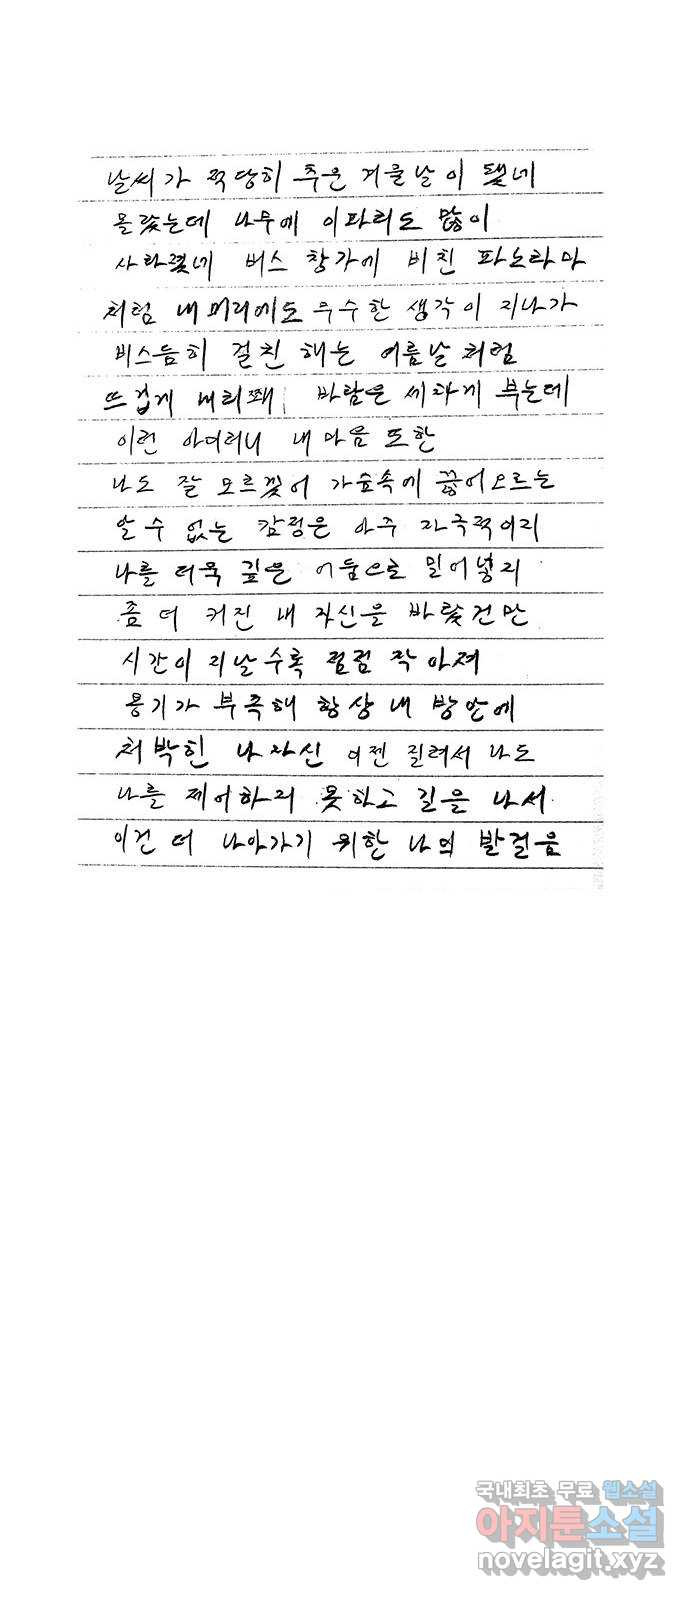 날씨가 적당히 추운 겨울날이 됐네
몰랐는데 나무에 이파리도 많이
사라졌네 버스 창가에 비친 파노라마
처럼 내 머리에도 무수한 생각이 지나가
비스듬히 걸친 해는 여름날처럼
뜨겁게 내리쫴 바람은 세차게 부는데
이런 아이러니 내 마음 또한
나도 잘 모르겠어 가슴속에 끓어오르는
알 수 없는 감정은 아주 자극적이지
나를 더욱 깊은 어둠으로 밀어넣지
좀 더 커진 내 자신을 바랐건만
시간이 지날수록 점점 작아져
용기가 부족해 항상 내 방안에
처박힌 나 자신 이젠 질려서 나도
나를 제어하지 못하고 길을 나서
이건 더 나아가기 위한 나의 발걸음
국내최초 무료 웹소설
아지툰소설
novelagit.xyz